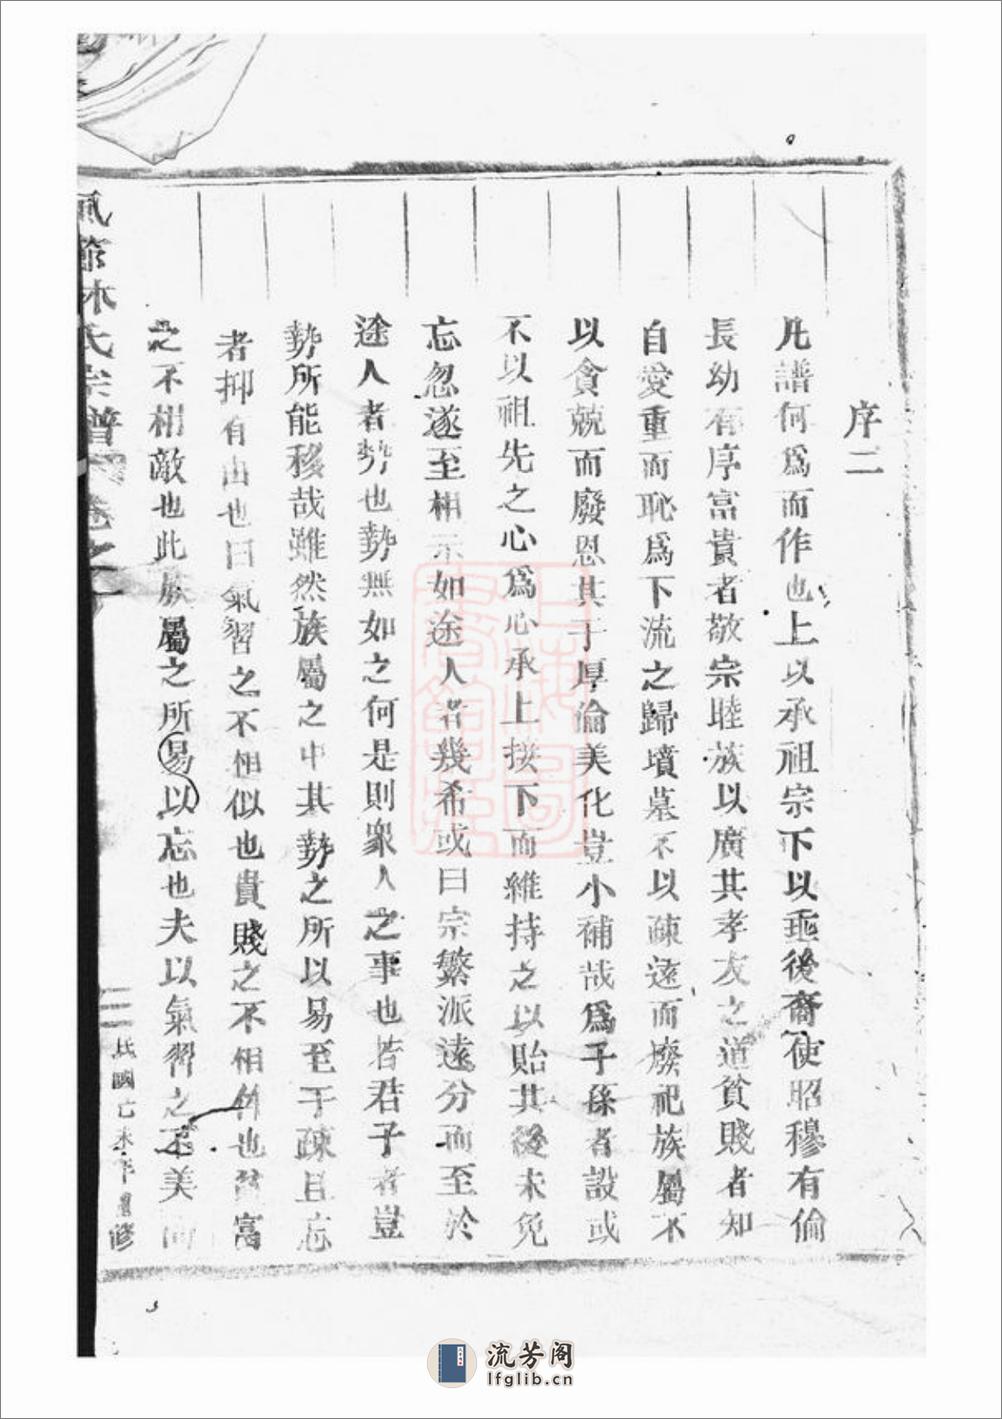 序二
凡譜何爲而作也上以承祖宗下以垂後裔使昭穆有倫
長幼有序富貴者敬宗睦族以廣其孝友之道貧賤者知
自愛重而恥爲下流之歸墳墓不以疎遠而廢祀族屬不
以貪兢而廢恩其于厚倫美化豈小補哉爲子孫者設或
不以祖先之心爲心承上接下而維持之以貽其後未免
忘忽遂至相示如途人者幾希或曰宗繁派遠分而至於
途人者勢也勢無如之何是則衆人之事也若君子者豈
勢所能移哉雖然族屬之中其勢之所以易至于疎且忘
者抑有由也曰氣習之不相似也貴賤之不相侔也貧富
之不相敵也此族屬之所易以忘也夫以氣習之不美而
風節林氏宗譜 卷之
二
民國亡未年重修
流芳阁
lfglib.cn